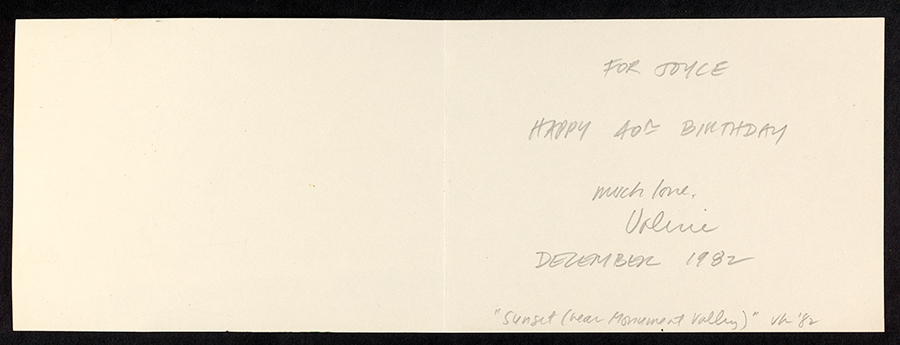 FOR JOYCE
HAPPY 40TH BIRTHDAY
much love,
Valerie
DECEMBER 1982
"Sunset (near Monument Valley)" vh '82